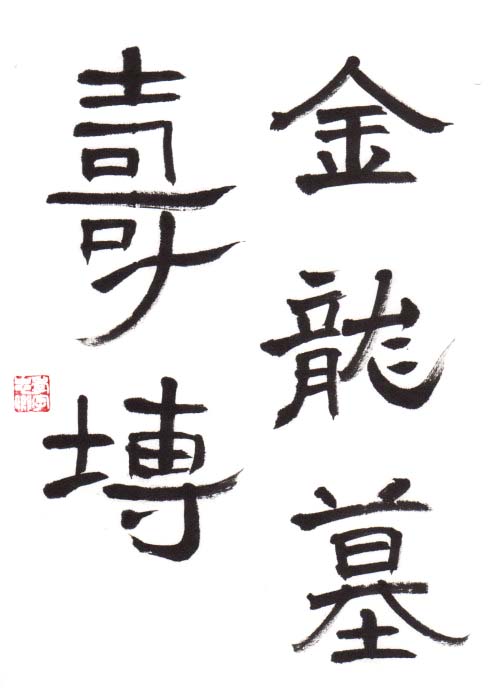 金龍墓
壽塼